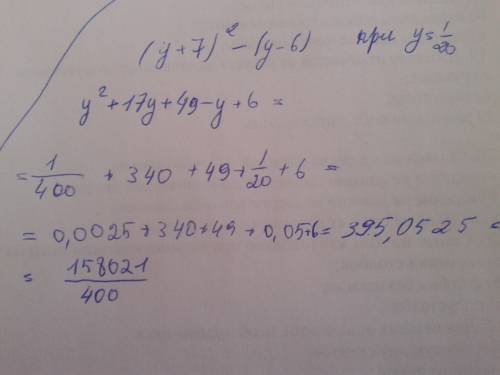 (y+7)² - (y-6) при y=1/20
y²+17y+49-y+6=
= 1/400 + 340 + 49 + 1/20 + 6 =
= 0,0025+340+49+0,05+6= 395,0525 =
= 158021/400